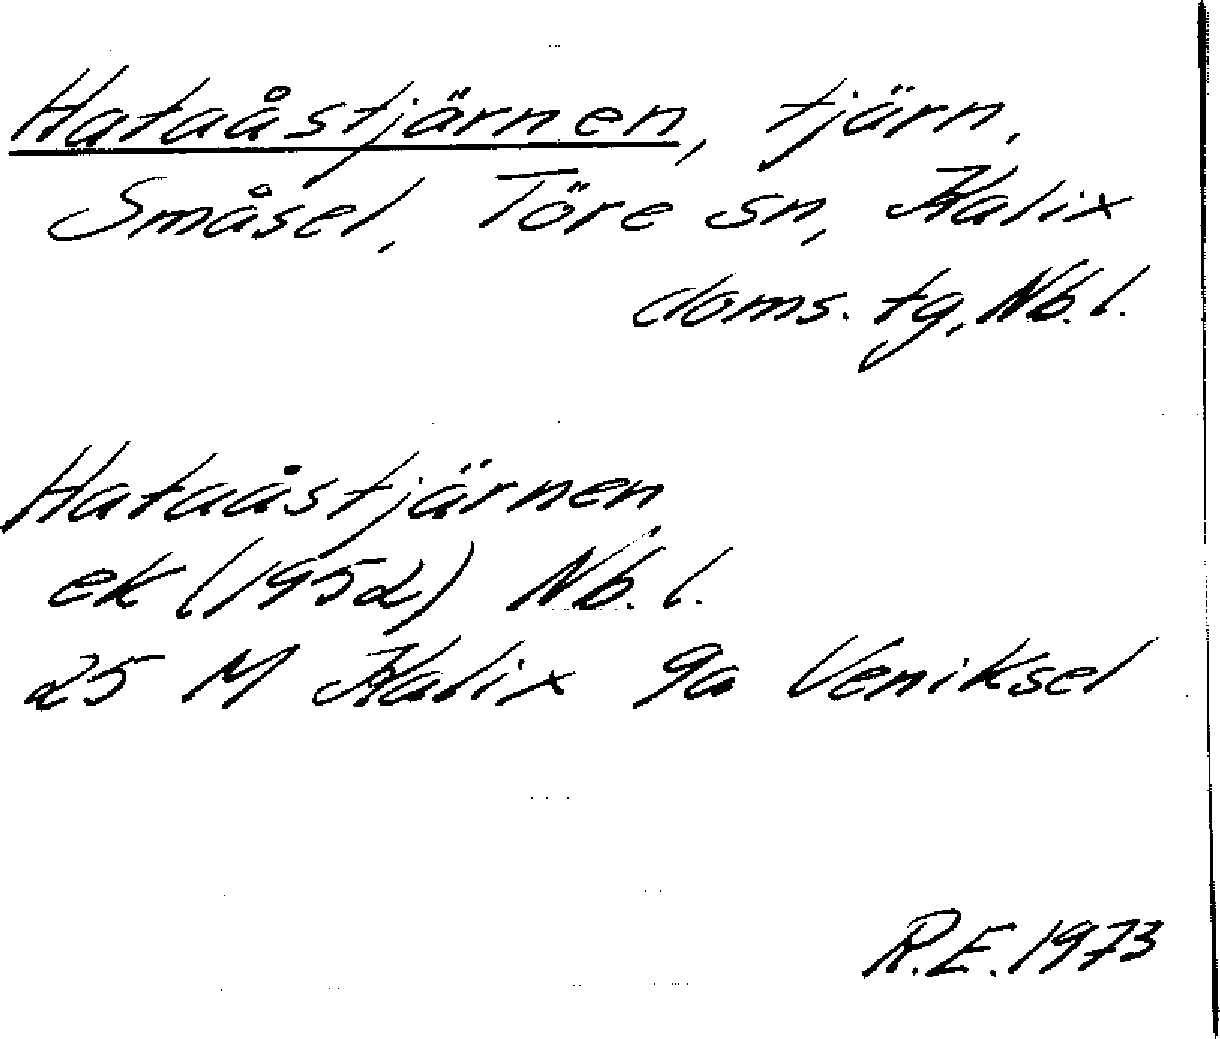 Hataåstjärnen, tjärn,
Småsel, Töre sn, Kalix
doms. tg, Nb. l.
Hataåstjärnen,
ek (1952) Nb. l.
25 M Kalix 9a Veniksel
R.E. 1973